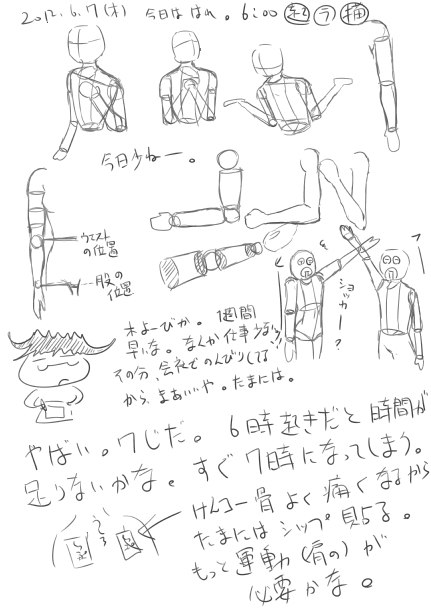 2012.6.7(木) 今日は はれ。6:00 起 ラ 描
今日少ねー。
ウエスト
の位置
股の
位置
ショッカー?
木よーびか。1週間
早いな。なんか仕事少ない?
その分、会社でのんびりしてる
から、まあいいや。たまには。
やばい。7じだ。6時起きだと時間が
足りないかな。すぐ7時になってしまう。
うしろ
けんコー骨よく痛くなるから
たまにはシップ貼る。
もっと運動(肩の)が
必要かな。